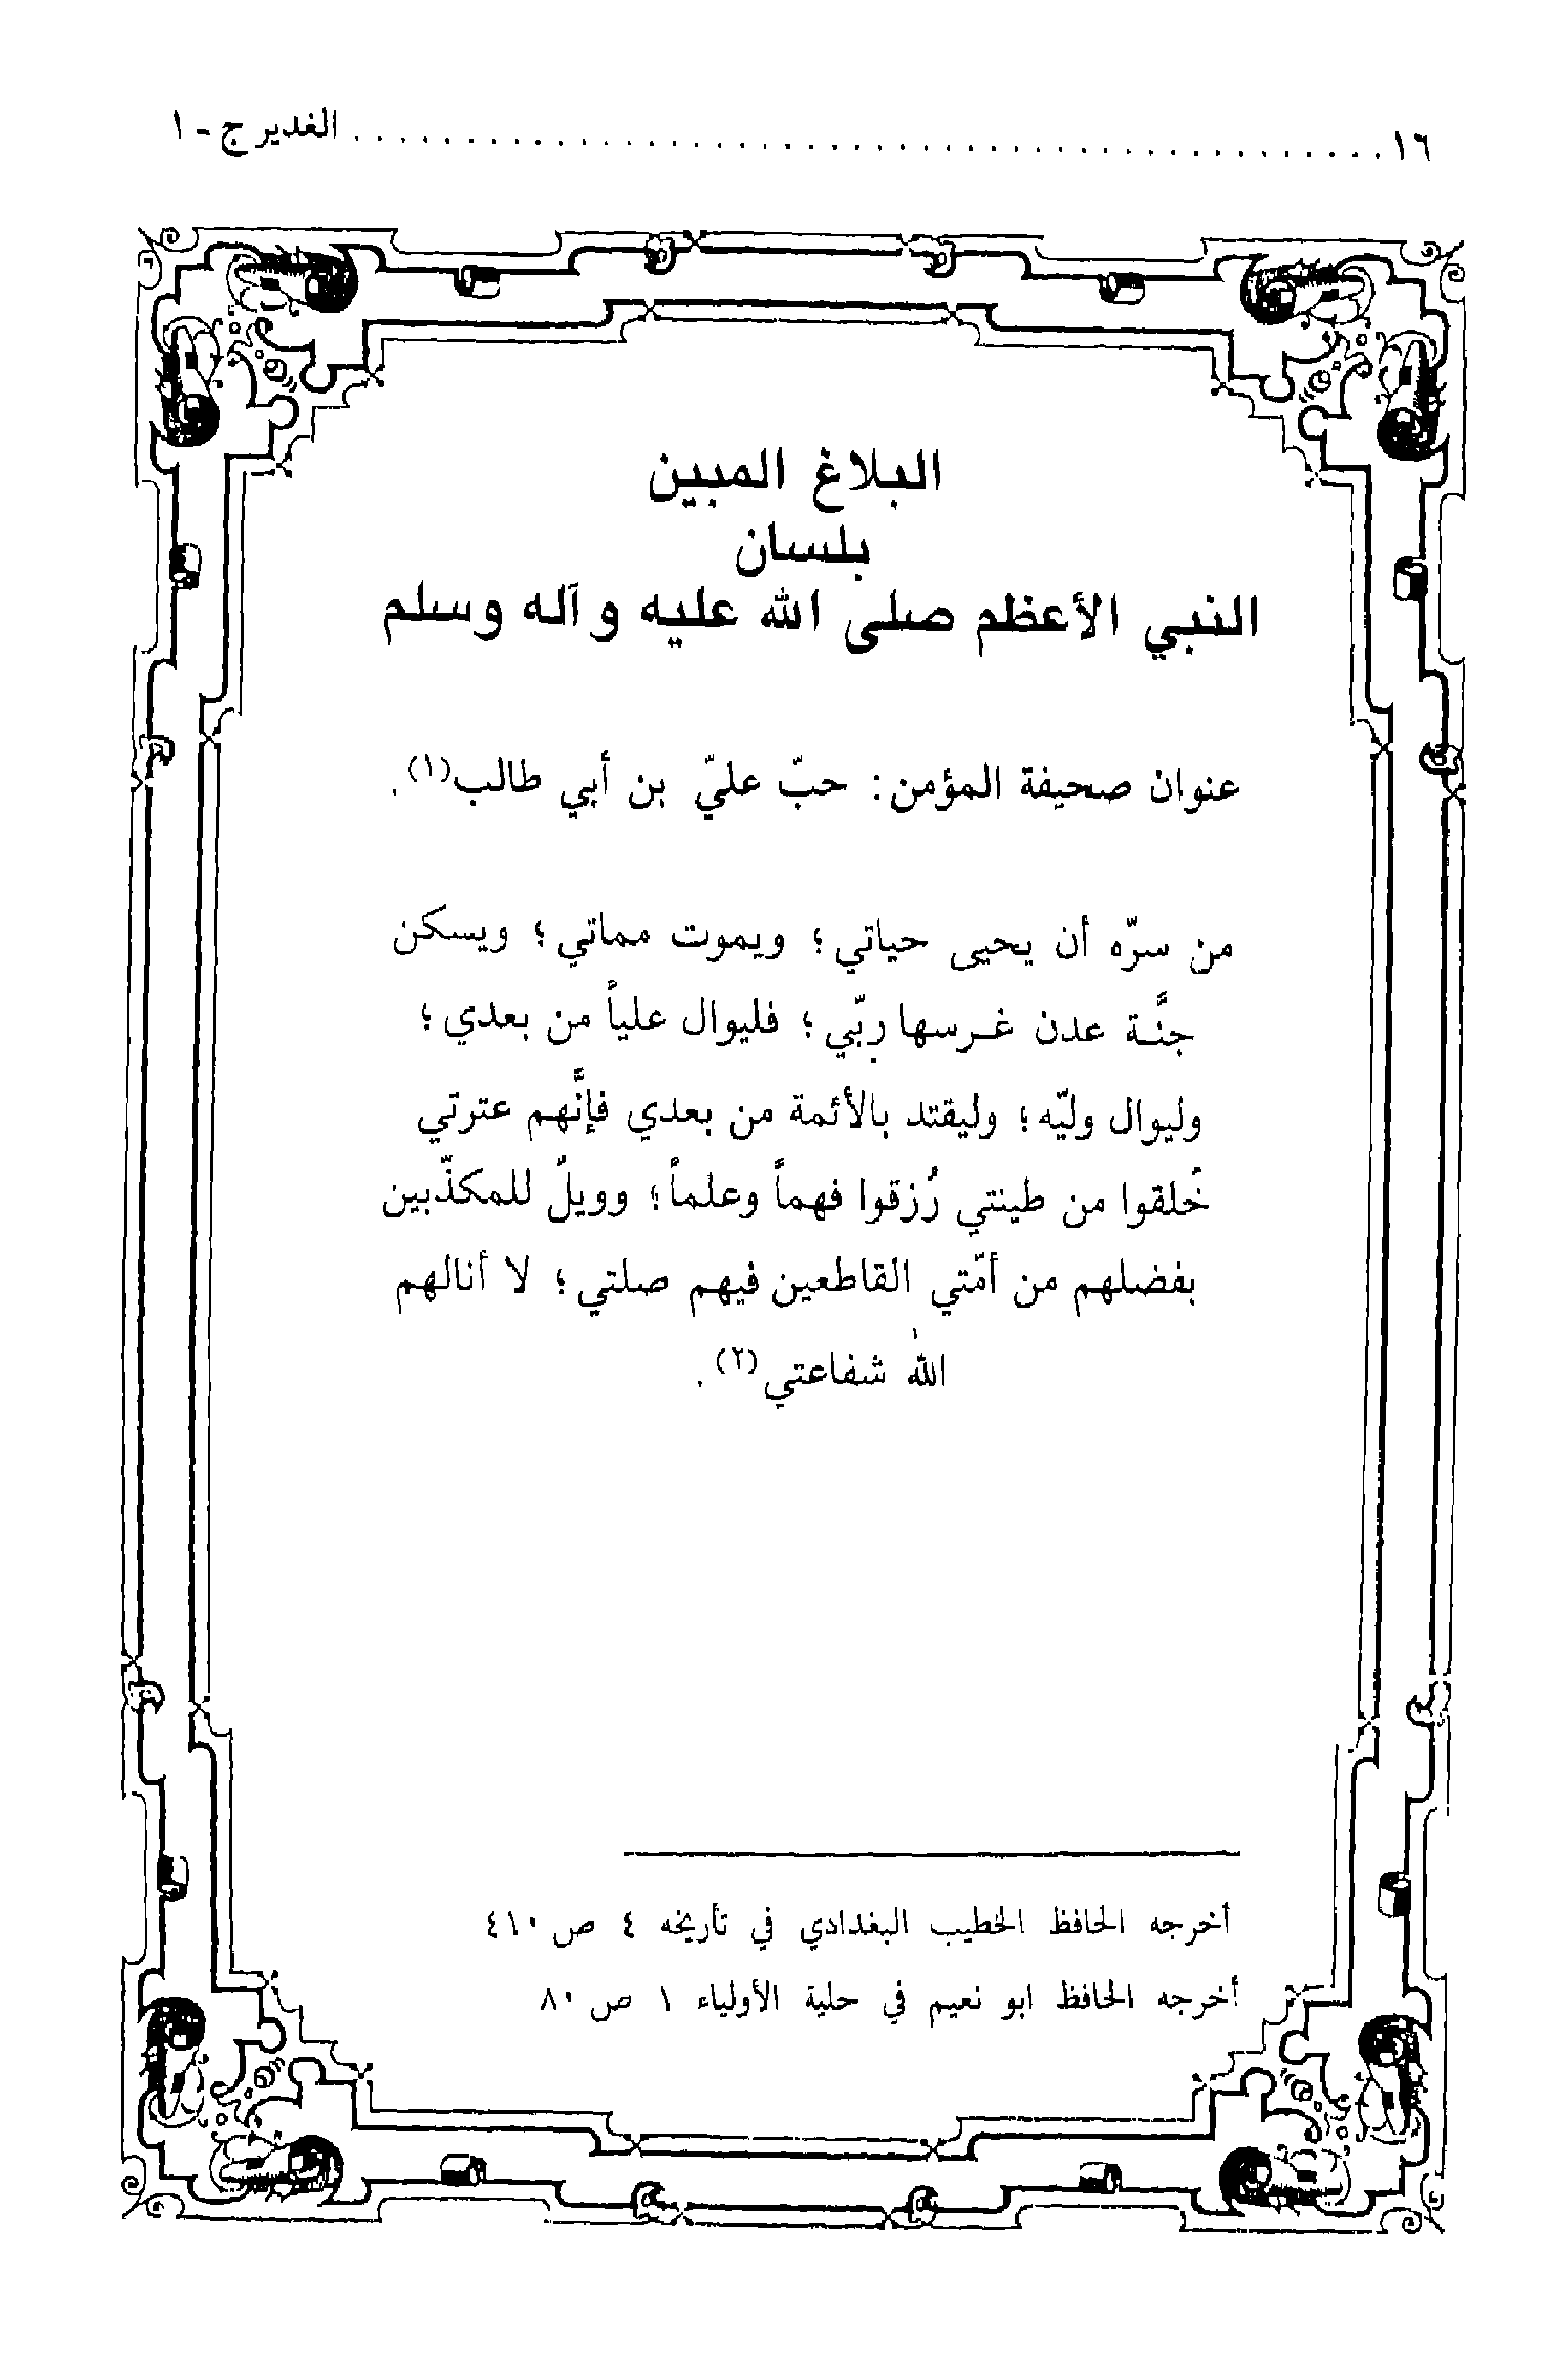 ١٦ ............................................... الغدير ج - ١
البلاغ المبين
بلسان
النبي الأعظم صلى الله عليه وآله وسلم
عنوان صحيفة المؤمن: حبّ عليّ بن أبي طالب(١).
من سرّه أن يحيى حياتي؛ ويموت مماتي؛ ويسكن
جنَّـة عدن غـرسها ربّي؛ فليوال علياً من بعدي؛
وليوال وليّه؛ وليقتد بالأئمة من بعدي فإنَّهم عترتي
خُلقوا من طينتي رُزقوا فهماً وعلماً؛ وويلٌ للمكذّبين
بفضلهم من أمّتي القاطعين فيهم صلتي؛ لا أنالهم
الله شفاعتي(٢).
أخرجه الحافظ الخطيب البغدادي في تأريخه ٤ ص ٤١٠
أخرجه الحافظ ابو نعيم في حلية الأولياء ١ ص ٨٠